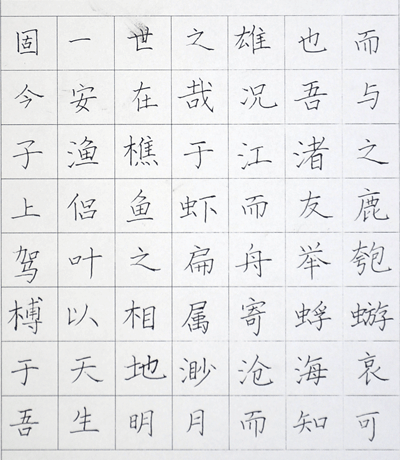 固一世之雄也而
今安在哉况吾与
子渔樵于江渚之
上侣鱼虾而友鹿
驾叶之扁舟举匏
樽以相属寄蜉蝣
于天地渺沧海哀
吾生明月而知可